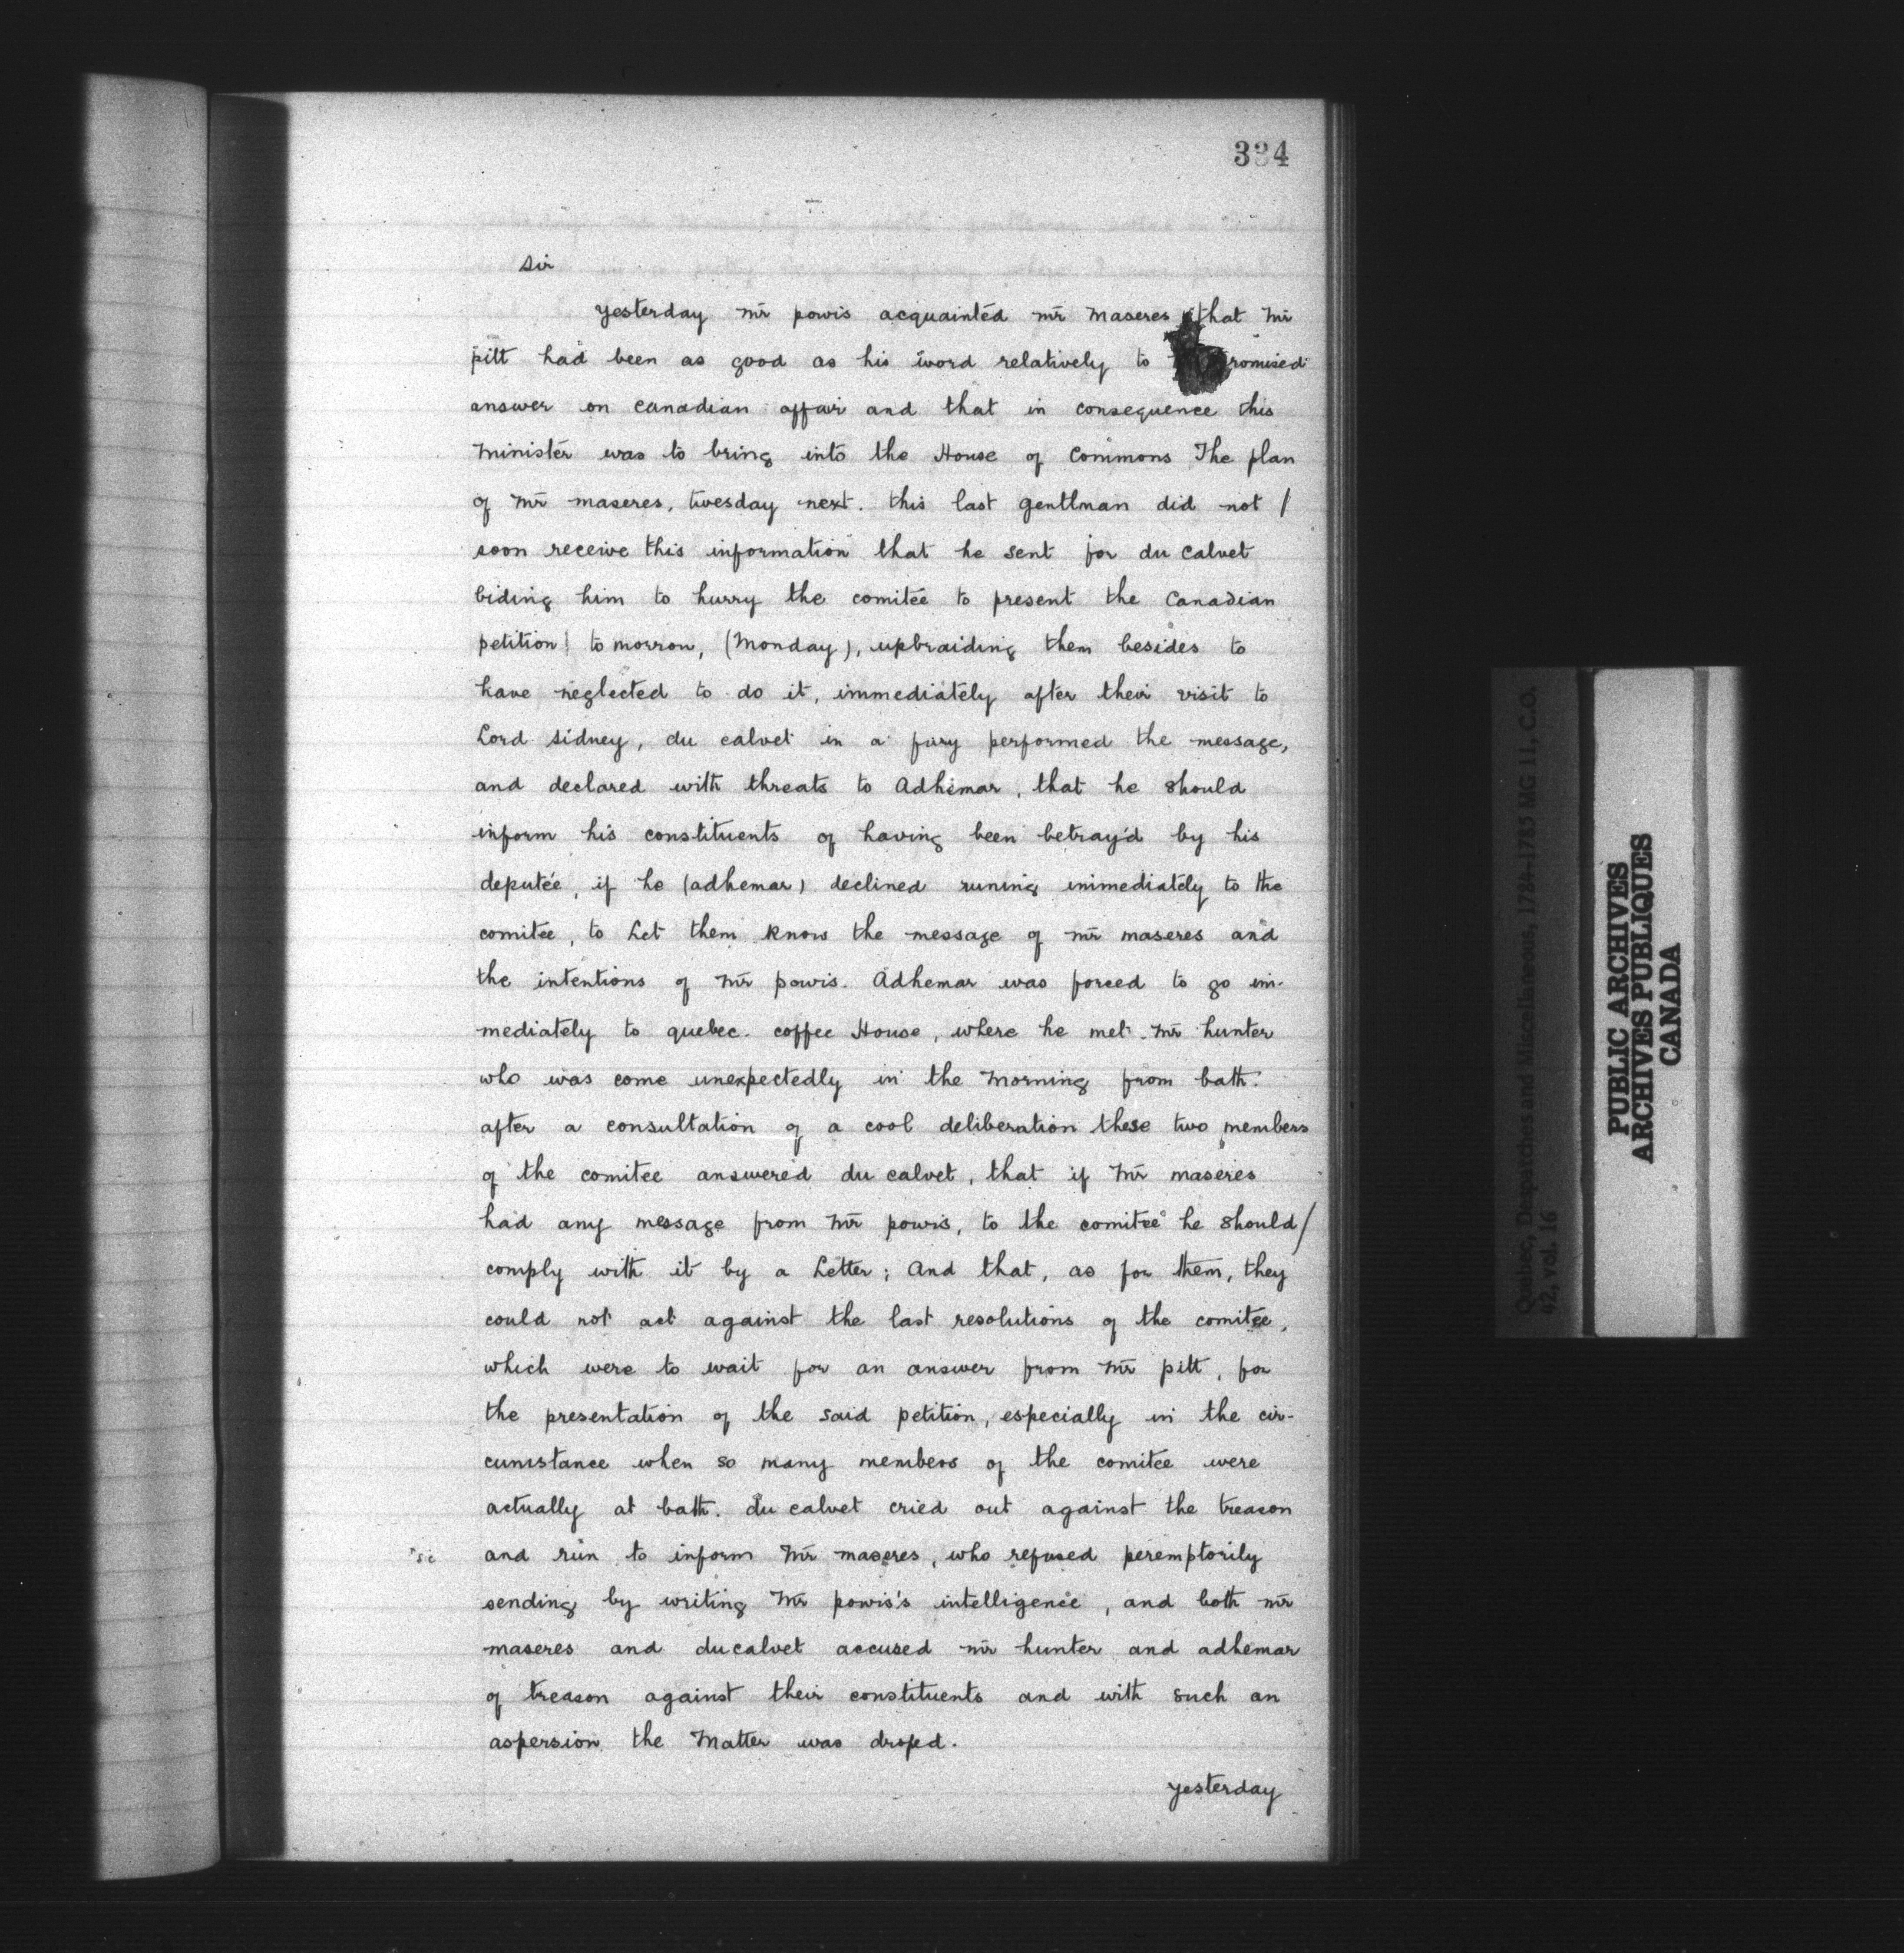 334
Sir
yesterday mr powis acquainted mr maseres that mr
pitt had been as good as his word relatively to romised
answer on canadian affair and that in consequence this
minister was to bring into the House of Commons The plan
of mr maseres, tuesday next. this last gentlman did not /
soon receive this information that he sent for du calvet
biding him to hurry the comitée to present the Canadian
petition! to morrow, (Monday), upbraiding them besides to
have neglected to do it, immediately after their visit to
Lord Sidney, du calvet in a fury performed the message,
and declared with threats to Adhémar, that he should
inform his constituents of having been betray'd by his
deputée, if he (adhemar) declined runing immediately to the
comitée, to Let them know the message of mr maseres and
the intentions of mr powis. Adhemar was forced to go im-
mediately to quebec coffee House, where he met mr hunter
who was come unexpectedly in the morning from bath.
after a consultation of a cool deliberation these two members
of the comitee answered du calvet, that if mr maseres
had any message from mr powis, to the comitee he should/
comply with it by a Letter; And that, as for them, they
could not act against the last resolutions of the comitee,
which were to wait for an answer from mr pitt, for
the presentation of the said petition, especially in the cir-
cumstance when so many members of the comitee were
actually at bath. du calvet cried out against the treason
sic and run to inform mr maseres, who refused peremptorily
sending by writing mr powis's intelligence, and both mr
maseres and ducalvet accused mr hunter and adhemar
of treason against their constituents and with such an
aspersion the Matter was droped.
yesterday
Quebec, Despatches and Miscellaneous, 1784-1785 MG 11, C.O.
42, vol. 16
PUBLIC ARCHIVES
ARCHIVES PUBLIQUES
CANADA